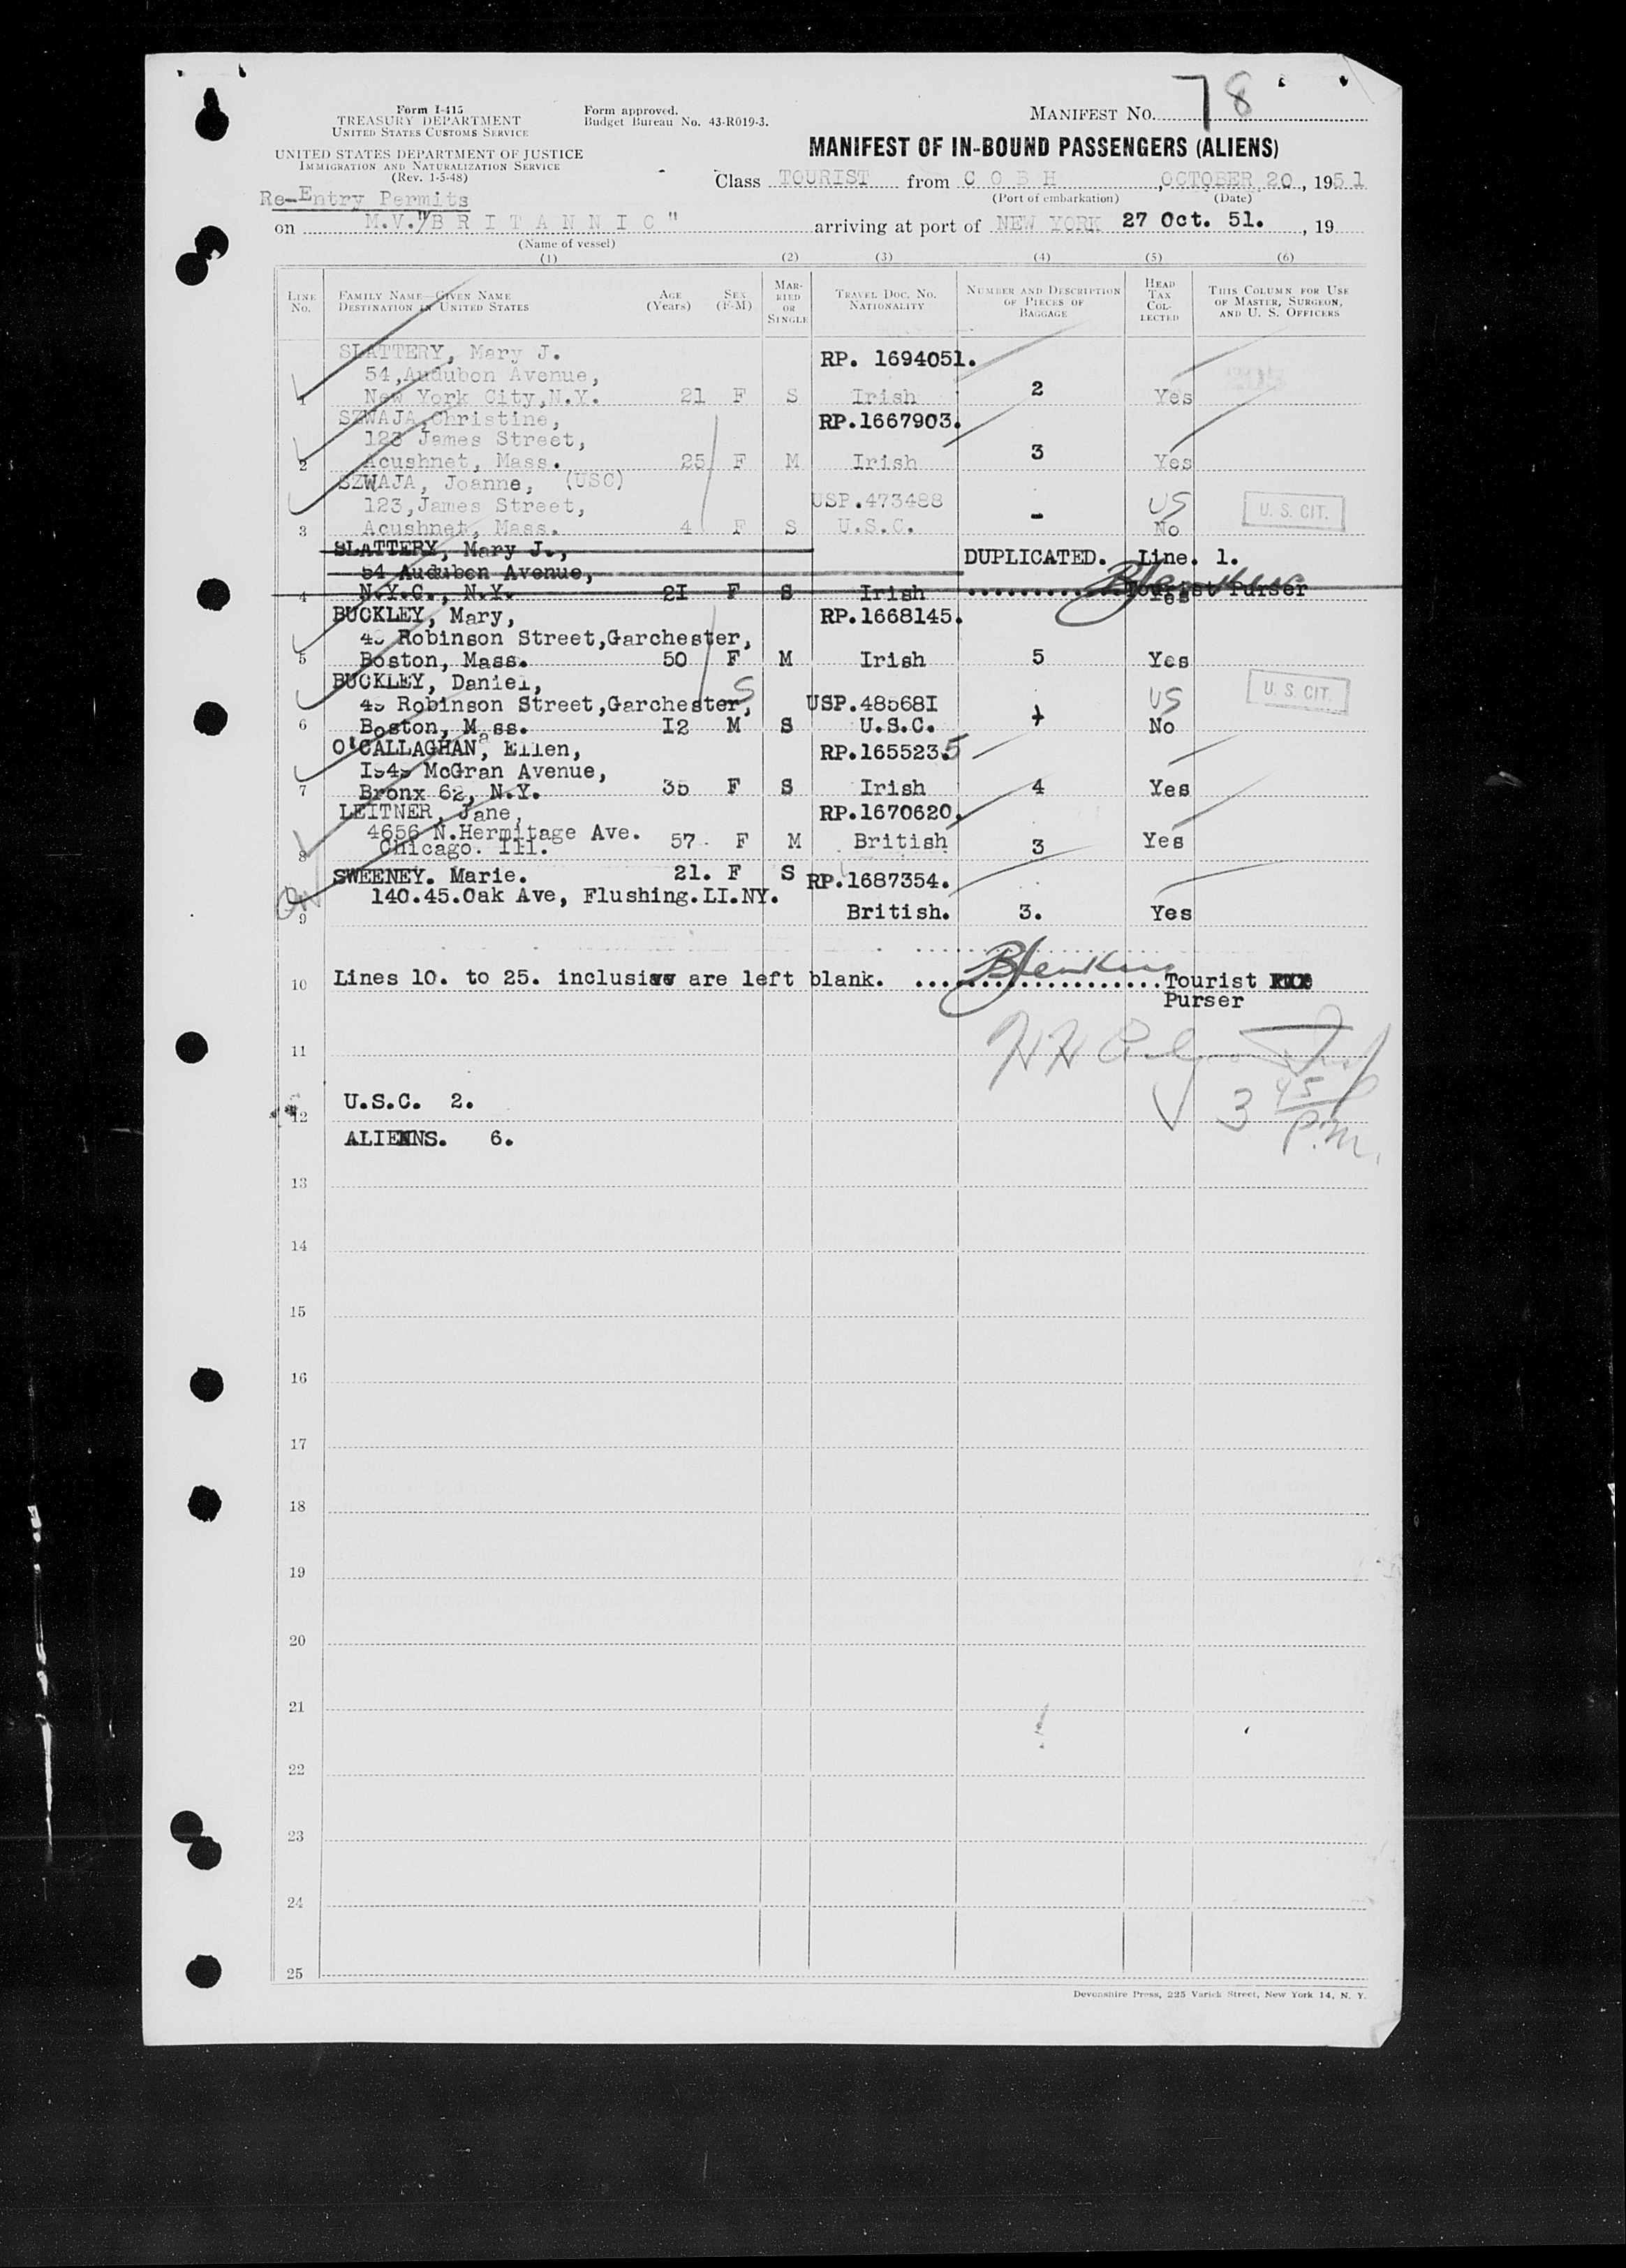 78
Form I-415
TREASURY DEPARTMENT
UNITED STATES CUSTOMS SERVICE
Form approved.
Budget Bureau No. 43-R019-3.
MANIFEST NO.
UNITED STATES DEPARTMENT OF JUSTICE
IMMIGRATION AND NATURALIZATION SERVICE
(Rev. 1-5-48)
MANIFEST OF IN-BOUND PASSENGERS (ALIENS)
Class TOURIST from C O B H , OCTOBER 20, 1951
(Port of embarkation) (Date)
Re-Entry Permits
on M.V."B R I T A N N I C" arriving at port of NEW YORK 27 Oct. 51. , 19
(Name of vessel)
(1) (2) (3) (4) (5) (6)
LINE NO. FAMILY NAME—GIVEN NAME DESTINATION IN UNITED STATES AGE (Years) SEX (F-M) MARRIED OR SINGLE TRAVEL DOC. NO. NATIONALITY NUMBER AND DESCRIPTION OF PIECES OF BAGGAGE HEAD TAX COLLECTED THIS COLUMN FOR USE OF MASTER, SURGEON, AND U. S. OFFICERS
SLATTERY, Mary J. RP. 1694051.
54,Audubon Avenue,
1 New York City,N.Y. 21 F S Irish 2 Yes
SZWAJA,Christine, RP.1667903.
123 James Street,
2 Acushnet, Mass. 25 F M Irish 3 Yes
SZWAJA, Joanne, (USC)
123,James Street, USP.473488 US U. S. CIT.
3 Acushnet, Mass. 4 F S U.S.C. - No
SLATTERY, Mary J., DUPLICATED. Line. 1.
54 Audubon Avenue,
4 N.Y.C., N.Y. 2I F S Irish Yes Tourist Purser
BUCKLEY, Mary, RP.1668145.
Robinson Street,Garchester,
5 Boston, Mass. 50 F M Irish 5 Yes
BUCKLEY, Daniel, S
Robinson Street,Garchester, USP.48568I US U. S. CIT.
6 Boston, Mass. I2 M S U.S.C. No
O'CALLAGHAN, Ellen, RP.1655235
McGran Avenue,
7 Bronx 62, N.Y. 35 F S Irish 4 Yes
LEITNER, Jane, RP.1670620.
4656 N.Hermitage Ave.
8 Chicago. Ill. 57. F M British 3 Yes
SWEENEY. Marie. 21. F S RP.1687354.
140.45.Oak Ave, Flushing.LI.NY.
9 British. 3. Yes
10 Lines 10. to 25. inclusive are left blank. BJenkins Tourist
Purser
11
3 45 P.M.
U.S.C. 2.
12
ALIENS. 6.
13
14
15
16
17
18
19
20
21
22
23
24
25
Devonshire Press, 225 Varick Street, New York 14, N. Y.